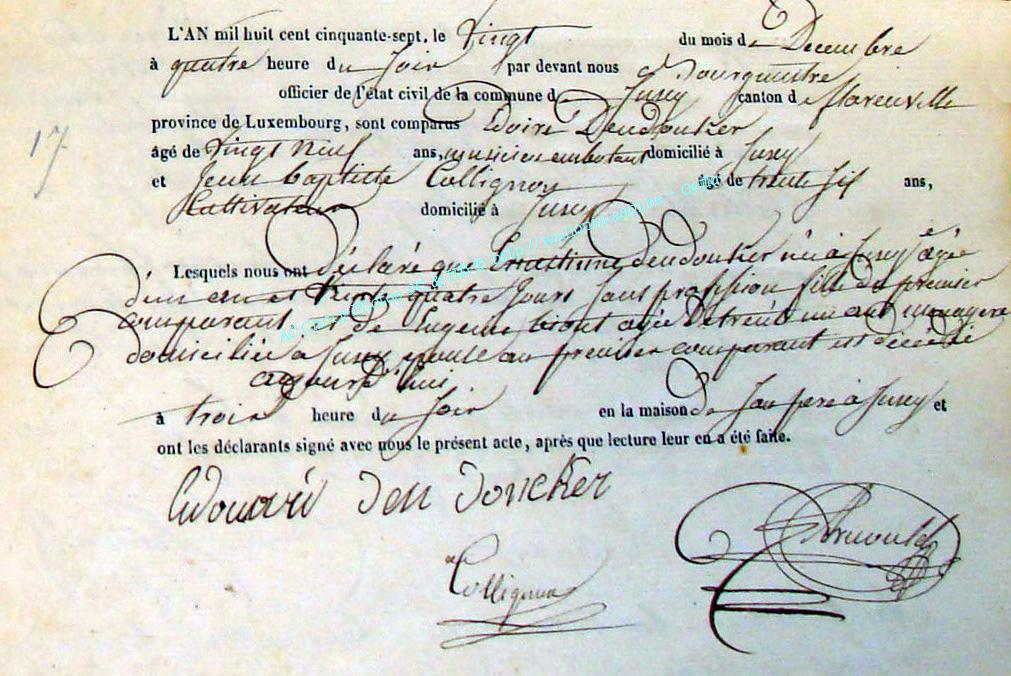 L'AN mil huit cent cinquante-sept, le Vingt du mois de Decembre
à quatre heure du soir par devant nous Bourgmestre
officier de l'état civil de la commune de Jusey canton de florenville
province de Luxembourg, sont comparus Edoire Dendonker
âgé de Vingt neuf ans, musicien ambulant domicilié à Jusey
17
et Jean baptiste Collignon âgé de trente six ans,
Cultivateur domicilié à Jusey
Lesquels nous ont déclaré que Ernestinne dendonker né à Jusey agée
d'un an et Vingt quatre Jours sans profession fille du premier
comparant et de Eugenie agée de trente un ans menagere
domiciliée à Jusey epouse au premier comparant est décédé
aujourd'hui
à trois heure du soir en la maison de son pere à Jusey et
ont les déclarants signé avec nous le présent acte, après que lecture leur en a été faite.
Edouard den doncker
Collignon
Arnould